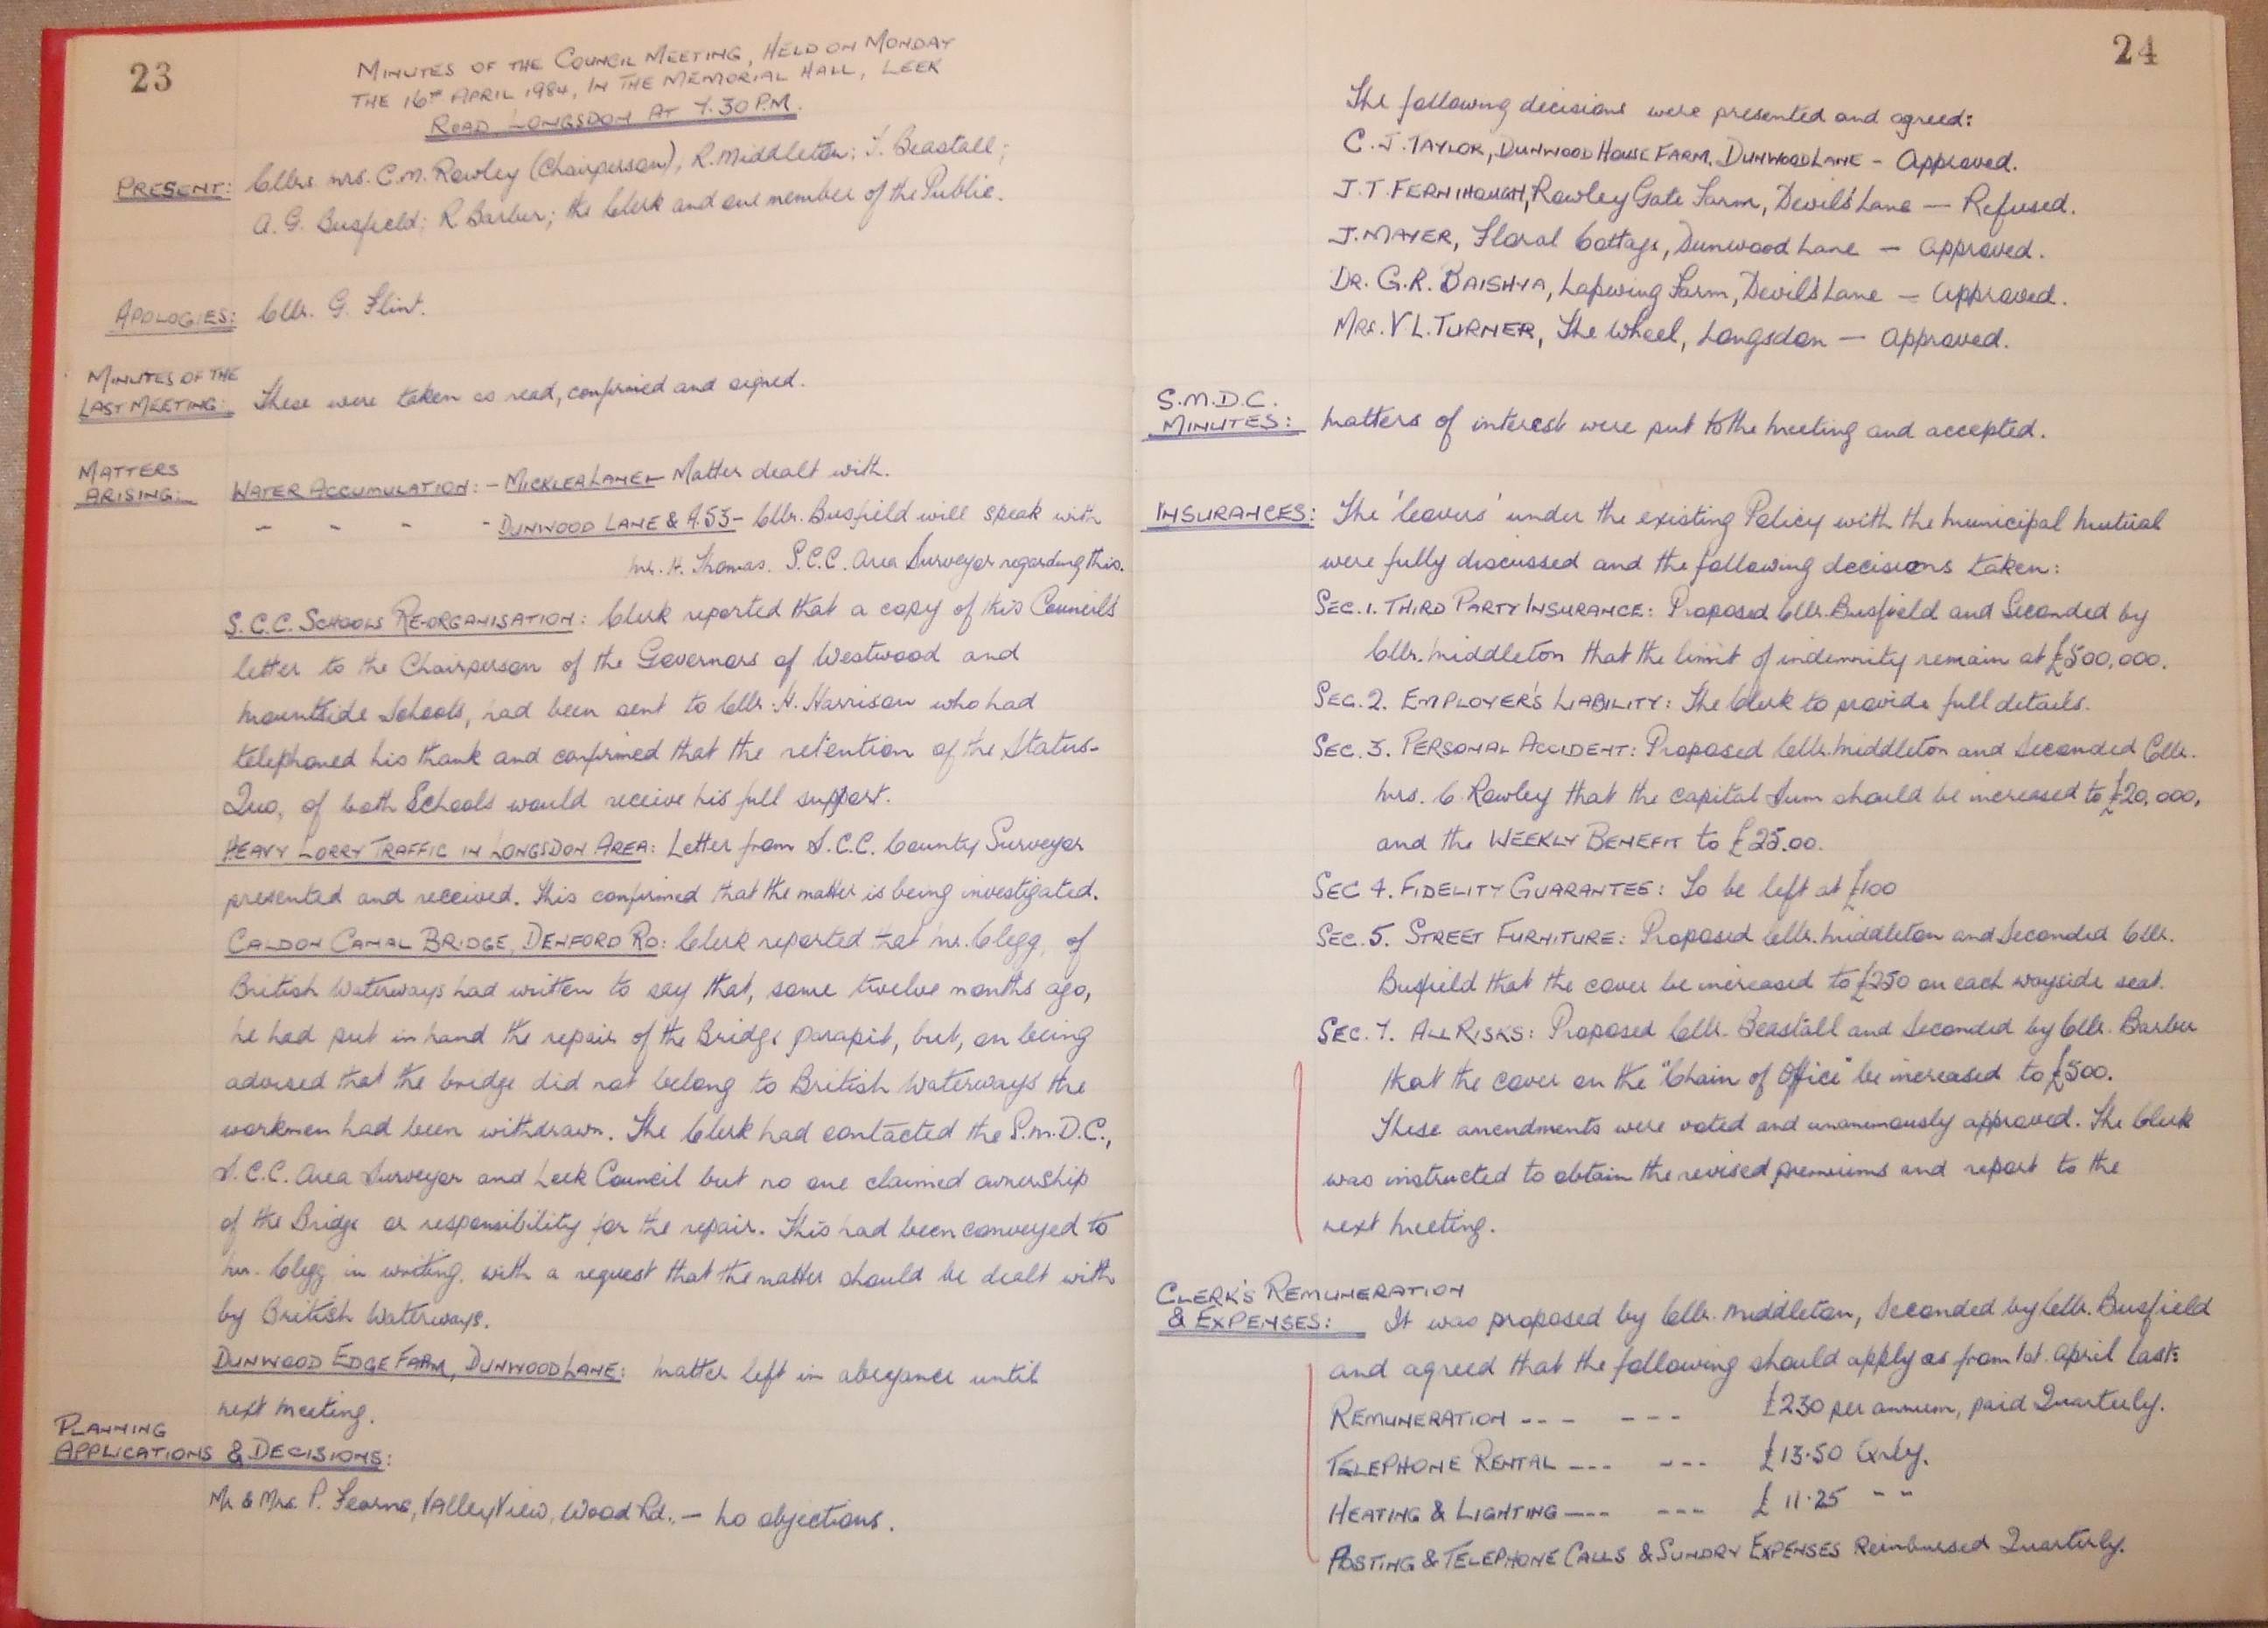 23
MINUTES OF THE COUNCIL MEETING, HELD ON MONDAY
THE 16TH APRIL 1984, IN THE MEMORIAL HALL, LEEK
ROAD LONGSDON AT 7.30 P.M.
PRESENT: Cllrs. Mrs. C.M. Rowley (Chairperson), R. Middleton; T. Beastall;
A. G. Busfield; R. Barber; the Clerk and one member of the Public.
APOLOGIES: Cllr. G. Flint.
MINUTES OF THE
LAST MEETING: These were taken as read, confirmed and signed.
MATTERS
ARISING: WATER ACCUMULATION: - MICKLEA LANE - Matter dealt with.
" " " - DUNWOOD LANE & A.53 - Cllr. Busfield will speak with
Mr. H. Thomas. S.C.C. Area Surveyor regarding this.
S.C.C. SCHOOLS RE-ORGANISATION: Clerk reported that a copy of this Councils
letter to the Chairperson of the Governors of Westwood and
Mountside Schools, had been sent to Cllr. H. Harrison who had
telephoned his thank and confirmed that the retention of the Status-
Quo, of both Schools would receive his full support.
HEAVY LORRY TRAFFIC IN LONGSDON AREA: Letter from S.C.C. County Surveyor
presented and received. This confirmed that the matter is being investigated.
CALDON CANAL BRIDGE, DENFORD RD: Clerk reported that Mr. Clegg, of
British Waterways had written to say that, some twelve months ago,
he had put in hand the repair of the Bridge parapit, but, on being
advised that the bridge did not belong to British Waterways the
workmen had been withdrawn. The Clerk had contacted the S.M.D.C.,
S.C.C. Area Surveyor and Leek Council but no one claimed ownership
of the Bridge or responsibility for the repair. This had been conveyed to
Mr. Clegg in writing, with a request that the matter should be dealt with
by British Waterways.
DUNWOOD EDGE FARM, DUNWOOD LANE: Matter left in abeyance until
next meeting.
PLANNING
APPLICATIONS & DECISIONS:
Mr & Mrs. P. Fearns, Valley View, Wood Rd. - No objections.
24
The following decisions were presented and agreed:
C. J. TAYLOR, DUNWOOD HOUSE FARM, DUNWOOD LANE - Approved.
J. T. FERNIHOUGH, Rowley Gate Farm, Devil's Lane - Refused.
J. MAYER, Floral Cottage, Dunwood Lane - Approved.
DR. G.R. BAISHYA, Lapwing Farm, Devil's Lane - Approved.
MRS. V L. TURNER, The Wheel, Longsdon - Approved.
S.M.D.C.
MINUTES: Matters of interest were put to the meeting and accepted.
INSURANCES: The 'Covers' under the existing Policy with the Municipal Mutual
were fully discussed and the following decisions taken:
SEC. 1. THIRD PARTY INSURANCE: Proposed Cllr. Busfield and Seconded by
Cllr. Middleton that the limit of indemnity remain at £500,000.
SEC. 2. EMPLOYER'S LIABILITY: The Clerk to provide full details.
SEC. 3. PERSONAL ACCIDENT: Proposed Cllr. Middleton and Seconded Cllr.
Mrs. C. Rowley that the capital sum should be increased to £20,000,
and the WEEKLY BENEFIT to £25.00.
SEC 4. FIDELITY GUARANTEE: To be left at £100
SEC. 5. STREET FURNITURE: Proposed Cllr. Middleton and Seconded Cllr.
Busfield that the cover be increased to £250 on each wayside seat.
SEC. 7. ALL RISKS: Proposed Cllr. Beastall and Seconded by Cllr. Barber
that the cover on the "Chain of Office" be increased to £500.
These amendments were voted and unanimously approved. The Clerk
was instructed to obtain the revised premiums and report to the
next meeting.
CLERK'S REMUNERATION
& EXPENSES: It was proposed by Cllr. Middleton, Seconded by Cllr. Busfield
and agreed that the following should apply as from 1st. April last:
REMUNERATION --- --- £230 per annum, paid Quarterly.
TELEPHONE RENTAL --- --- £13.50 Qrtly.
HEATING & LIGHTING --- --- £11.25 " "
POSTING & TELEPHONE CALLS & SUNDRY EXPENSES Reimbursed Quarterly.